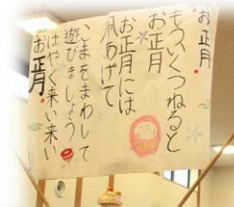 お正月
もういくつねると
お正月
お正月には
凧あげて
こまをまわして
遊びましょう
はやく来い来い
お正月